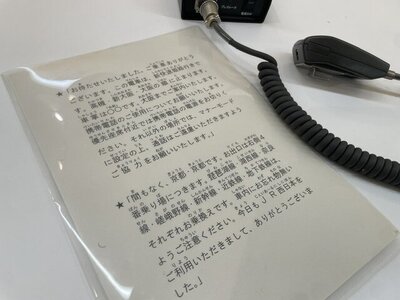 ★「お待たせいたしました。ご乗車ありがとう
ございます。この電車は、新快速姫路行きで
す。高槻、新大阪、大阪の順に止まります。
車掌は○○です。大阪までご案内いたします。
携帯電話のご使用についてお願いいたします。
優先座席付近では携帯電話の電源をお切りく
ださい。それ以外の場所では、マナーモード
に設定の上、通話はご遠慮いただきますよう
ご協力をお願いいたします。」
★「間もなく、京都、京都です。お出口は右側4
番乗り場につきます。琵琶湖線、湖西線、奈良
線、嵯峨野線、新幹線、近鉄線、地下鉄線は、
それぞれお乗換えです。車内にお忘れ物ない
ようご注意ください。今日も、JR西日本を
ご利用いただきまして、ありがとうございま
した。」